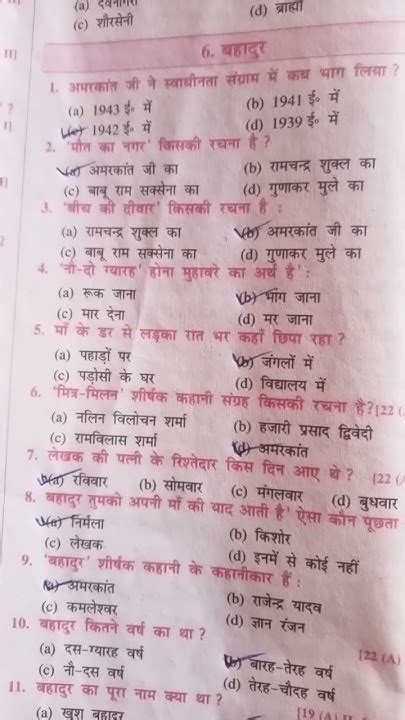 (a) देवनागरी
(d) ब्राह्मी
(c) शौरसेनी
6. बहादुर
1. अमरकांत जी ने स्वाधीनता संग्राम में कब भाग लिया ?
(a) 1943 ई० में (b) 1941 ई० में
(c) 1942 ई० में (d) 1939 ई० में
2. 'मौत का नगर' किसकी रचना है ?
(a) अमरकांत जी का (b) रामचन्द्र शुक्ल का
(c) बाबू राम सक्सेना का (d) गुणाकर मुले का
3. 'बीच की दीवार' किसकी रचना है :
(a) रामचन्द्र शुक्ल का (b) अमरकांत जी का
(c) बाबू राम सक्सेना का (d) गुणाकर मुले का
4. 'नौ-दो ग्यारह' होना मुहावरे का अर्थ है' :
(a) रूक जाना (b) भाग जाना
(c) मार देना (d) मर जाना
5. माँ के डर से लड़का रात भर कहाँ छिपा रहा ?
(a) पहाड़ों पर (b) जंगलों में
(c) पड़ोसी के घर (d) विद्यालय में
6. 'मित्र-मिलन' शीर्षक कहानी संग्रह किसकी रचना है?[22 (
(a) नलिन विलोचन शर्मा (b) हजारी प्रसाद द्विवेदी
(c) रामविलास शर्मा (d) अमरकांत
7. लेखक की पत्नी के रिश्तेदार किस दिन आए थे ? [22 (
(a) रविवार (b) सोमवार (c) मंगलवार (d) बुधवार
8. बहादुर तुमको अपनी माँ की याद आती है' ऐसा कौन पूछता
(a) निर्मला (b) किशोर
(c) लेखक (d) इनमें से कोई नहीं
9. 'बहादुर' शीर्षक कहानी के कहानीकार हैं :
(a) अमरकांत (b) राजेन्द्र यादव
(c) कमलेश्वर (d) ज्ञान रंजन
10. बहादुर कितने वर्ष का था ? [22 (A)
(a) दस-ग्यारह वर्ष (b) बारह-तेरह वर्ष
(c) नौ-दस वर्ष (d) तेरह-चौदह वर्ष
11. बहादुर का पूरा नाम क्या था ? [19 (A)
(a) खुश बहादुर